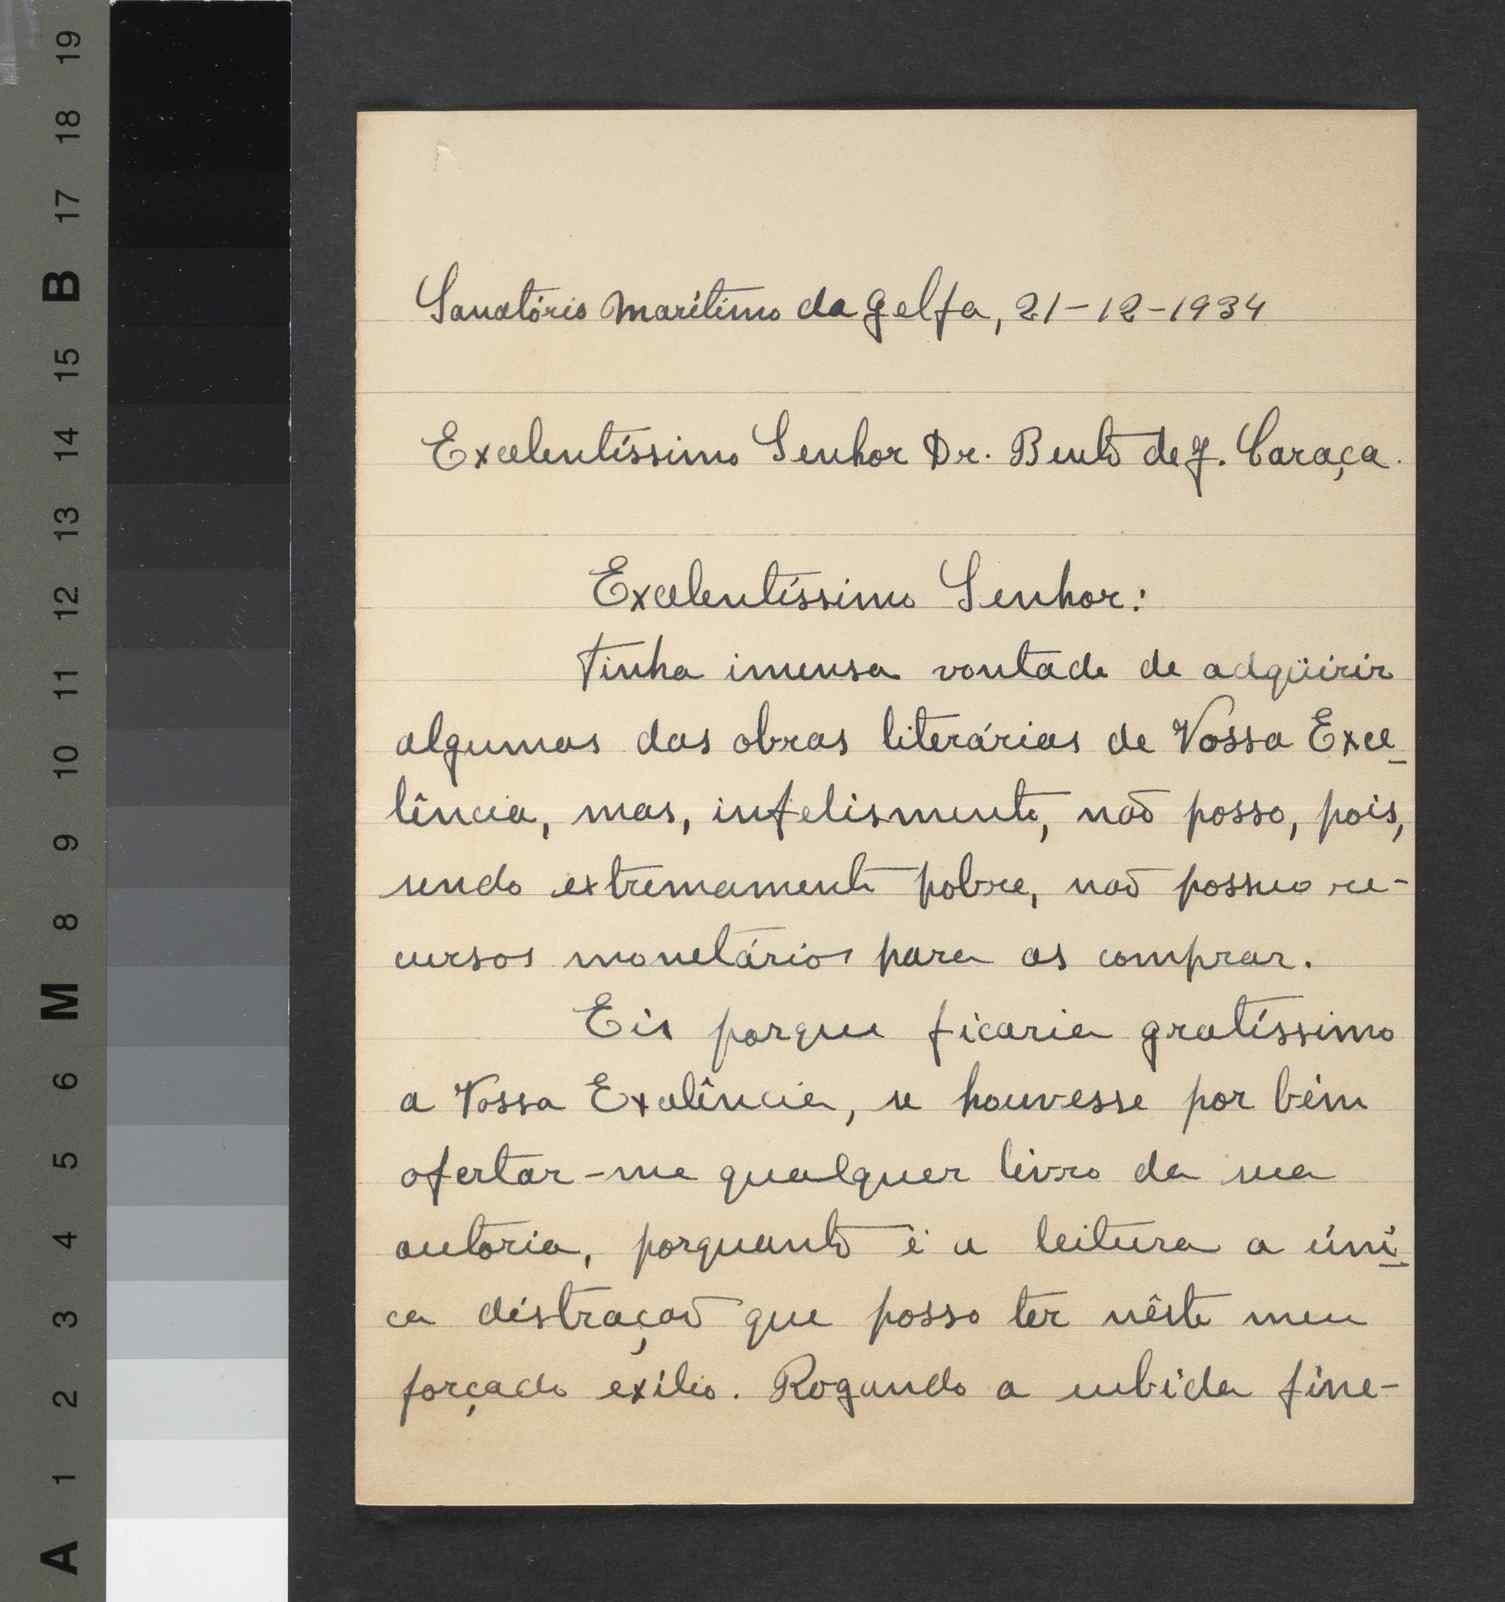 Sanatório Marítimo da Gelfa, 21-12-1934
Excelentíssimo Senhor Dr. Bento de J. Caraça.
Excelentíssimo Senhor:
Tinha imensa vontade de adqüirir
algumas das obras literárias de Vossa Exce-
lência, mas, infelismente, não posso, pois,
sendo extremamente pobre, não possuo re-
cursos monetários para as comprar.
Eis porque ficaria gratíssimo
a Vossa Excelência, se houvesse por bém
ofertar-me qualquer livro da sua
autoria, porquanto é a leitura a úni-
ca distração que posso ter nêste meu
forçado exílio. Rogando a subida fine-
19
18
17
B
15
14
13
12
11
10
9
8
M
6
5
4
3
2
1
A